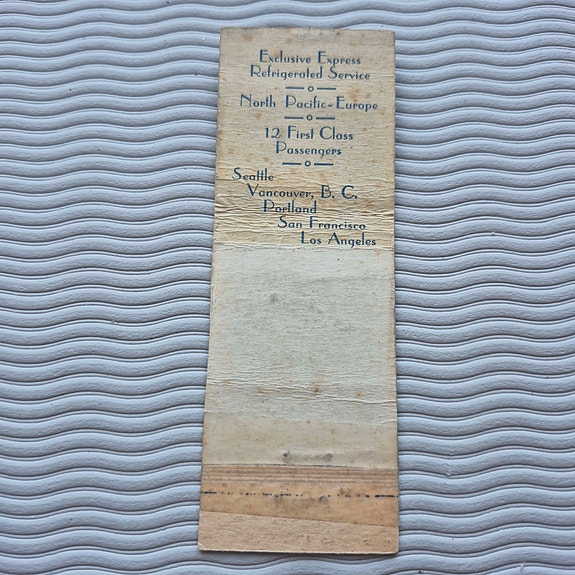 Exclusive Express
Refrigerated Service
North Pacific-Europe
12 First Class
Passengers
Seattle
Vancouver, B. C.
Portland
San Francisco
Los Angeles